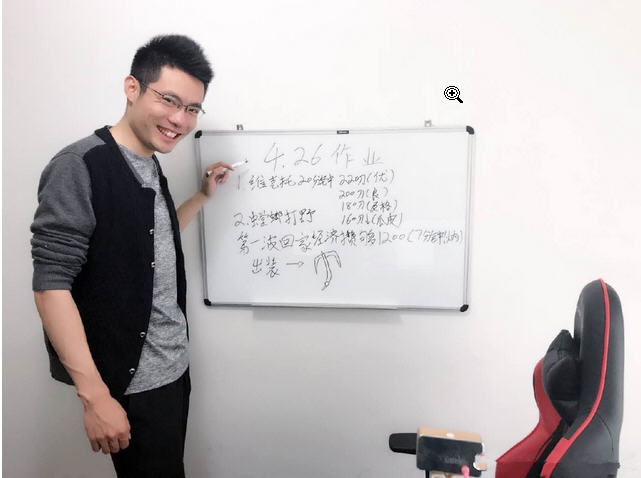 4.26作业
1. 维克托20分钟 220刀(优)
200刀(良)
180刀(及格)
2.螳螂打野 160刀(瓜皮)
第一波回家经济攒够1200(7分钟以内)
出装→